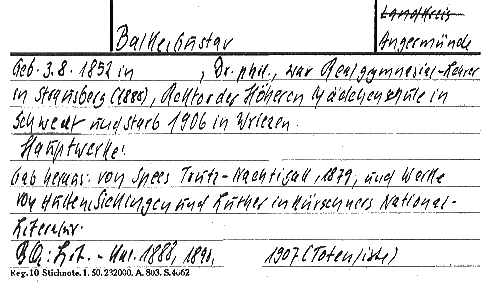 Landkreis
Balke, Gustav
Angermünde
Geb. 3.8.1852 in , Dr. phil., war Realgymnasial-Lehrer
in Strausberg (1880), Rektor der Höheren Mädchenschule in
Schwedt und starb 1906 in Wriezen.
Hauptwerke:
Gab heraus: von Spees Trutz-Nachtigall, 1879, und Werke
von Hutten Sickingen und Luther in Kürschners National-
Literatur.
BQ: Lit.-Kal. 1888, 1890, 1907 (Totenliste)
Reg. 10 Stichnote. I. 50. 232000. A. 803. S. 4662